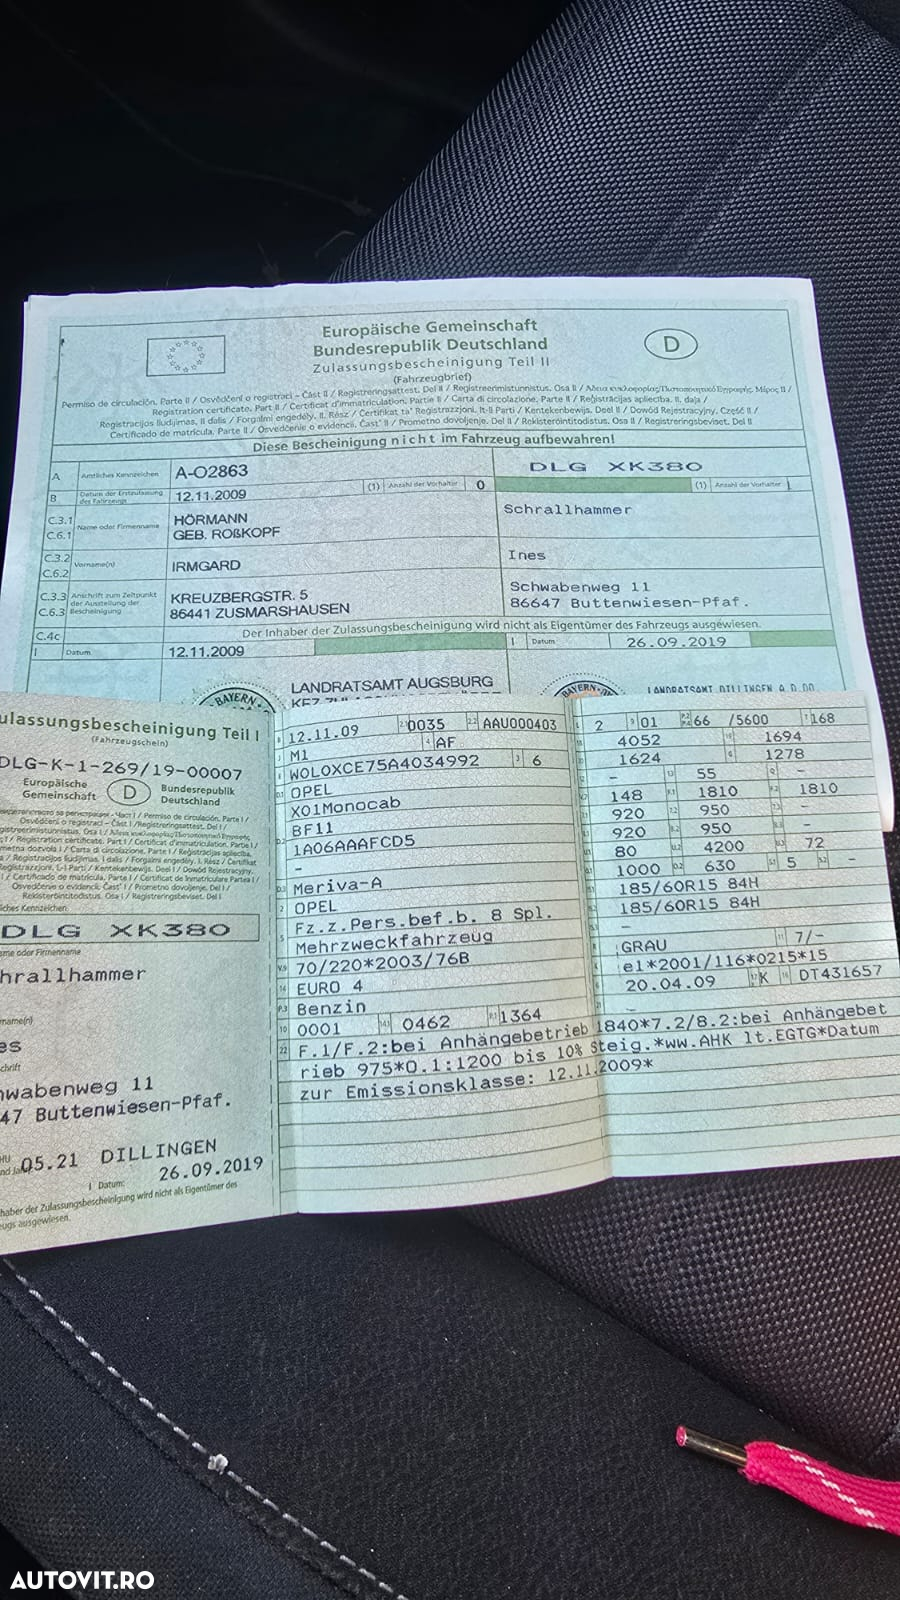 Europäische Gemeinschaft
Bundesrepublik Deutschland
Zulassungsbescheinigung Teil II
(Fahrzeugbrief)
D
Permiso de circulación. Parte II / Osvědčení o registraci – Část II / Registreringsattest. Del II / Registreerimistunnistus. Osa II /
Registration certificate. Part II / Certificat d'immatriculation. Partie II / Carta di circolazione. Parte II / Reģistrācijas apliecība. II. daļa /
Registracijos liudijimas. II dalis / Forgalmi engedély. II. Rész / Ċertifikat ta' Reġistrazzjoni. It-II Parti / Kentekenbewijs. Deel II / Dowód Rejestracyjny. Część II /
Certificado de matrícula. Parte II / Osvedčenie o evidencii. Časť II / Prometno dovoljenje. Del II / Rekisteröintitodistus. Osa II / Registreringsbeviset. Del II
Diese Bescheinigung nicht im Fahrzeug aufbewahren!
A Amtliches Kennzeichen A-O2863 DLG XK380
B Datum der Erstzulassung des Fahrzeugs 12.11.2009 (1) Anzahl der Vorhalter 0 (1) Anzahl der Vorhalter
C.3.1 C.6.1 Name oder Firmenname HÖRMANN Schrallhammer
GEB. ROßKOPF
C.3.2 C.6.2 Vorname(n) IRMGARD Ines
C.3.3 C.6.3 Anschrift zum Zeitpunkt der Ausstellung der Bescheinigung KREUZBERGSTR. 5 Schwabenweg 11
86441 ZUSMARSHAUSEN 86647 Buttenwiesen-Pfaf.
C.4c Der Inhaber der Zulassungsbescheinigung wird nicht als Eigentümer des Fahrzeugs ausgewiesen.
I Datum 12.11.2009 I Datum 26.09.2019
BAYERN LANDRATSAMT AUGSBURG BAYERN LANDRATSAMT DILLINGEN A.D.DO
ulassungsbescheinigung Teil I
(Fahrzeugschein)
DLG-K-1-269/19-00007
Europäische Gemeinschaft D Bundesrepublik Deutschland
DLG XK380
ame oder Firmenname
hrallhammer
rname(n)
es
schrift
hwabenweg 11
47 Buttenwiesen-Pfaf.
HU 05.21 DILLINGEN
I Datum: 26.09.2019
haber der Zulassungsbescheinigung wird nicht als Eigentümer des
eugs ausgewiesen.
12.11.09 0035 AAU000403
M1 AF
W0L0XCE75A4034992 6
OPEL
X01Monocab
BF11
1A06AAAFCD5
–
Meriva-A
OPEL
Fz.z.Pers.bef.b. 8 Spl.
Mehrzweckfahrzeug
70/220*2003/76B
EURO 4
Benzin
0001 0462 1364
2 01 66 /5600 168
4052 1694
1624 1278
– 55 –
148 1810 1810
920 950 –
920 950 –
80 4200 72
1000 630 5 –
185/60R15 84H
185/60R15 84H
–
GRAU 7/-
e1*2001/116*0215*15
20.04.09 K DT431657
–
F.1/F.2:bei Anhängebetrieb 1840*7.2/8.2:bei Anhängebet
rieb 975*O.1:1200 bis 10% Steig.*ww.AHK lt.EGTG*Datum
zur Emissionsklasse: 12.11.2009*
AUTOVIT.RO